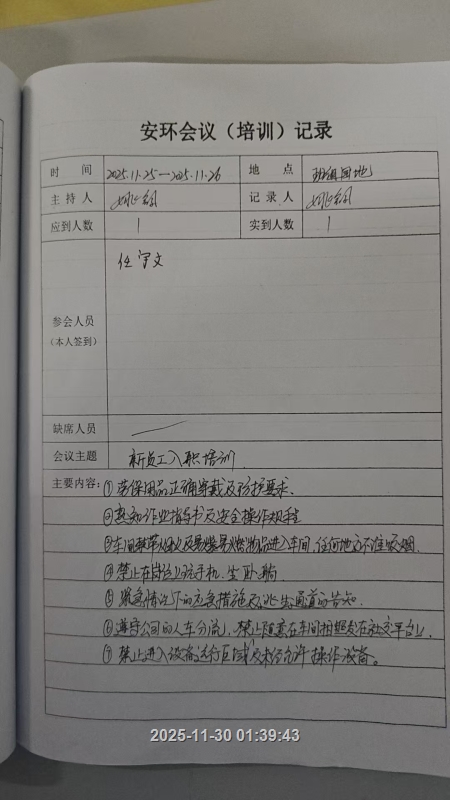 安环会议（培训）记录
时 间 2025.11.25—2025.11.26 地 点 班组园地
主 持 人 记 录 人
应到人数 1 实到人数 1
任宇文
参会人员
（本人签到）
缺席人员
会议主题 新员工入职培训
主要内容: ①劳保用品正确穿戴及防护要求.
②熟知作业指导书及安全操作规程
③车间 火种及易燃易爆物品进入车间,任何地方不准吸烟.
④禁止在岗位上玩手机、坐卧躺
⑤紧急情况下的应急措施及逃生通道的告知.
⑥遵守公司的人车分流,禁止随意在车间拍照发在社交平台上.
⑦禁止进入设备运行区域及未经允许操作设备。
2025-11-30 01:39:43